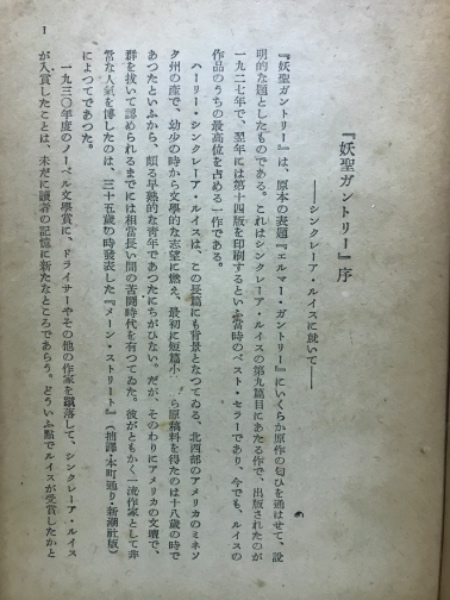 『妖聖ガントリー』序
――シンクレーア・ルイスに就いて――
『妖聖ガントリー』は、原本の表題『エルマー・ガントリー』にいくらか原作の匂ひを通はせて、說
明的な題としたものである。これはシンクレーア・ルイスの第九篇目にあたる作で、出版されたのが
一九二七年で、翌年には第十四版を印刷するといふ當時のベスト・セラーであり、今でも、ルイスの
作品のうちの最高位を占める一作である。
ハーリー・シンクレーア・ルイスは、この長篇にも背景となつてゐる、北西部のアメリカのミネソ
タ州の產で、幼少の時から文學的な志望に燃え、最初に短篇小 ら原稿料を得たのは十八歲の時で
あつたといふから、頗る早熟的な靑年であつたにちがひない。だが、そのわりにアメリカの文壇で、
群を拔いて認められるまでには相當長い間の苦鬪時代を有つてゐた。彼がともかく一流作家として非
常な人氣を博したのは、三十五歲の時發表した『メーン・ストリート』(拙譯・本町通り・新潮社版)
によつてであつた。
一九三〇年度のノーベル文學賞に、ドライサーやその他の作家を蹴落して、シンクレーア・ルイス
が入賞したことは、未だに讀者の記憶に新たなところであらう。どういふ點でルイスが受賞したかと
1